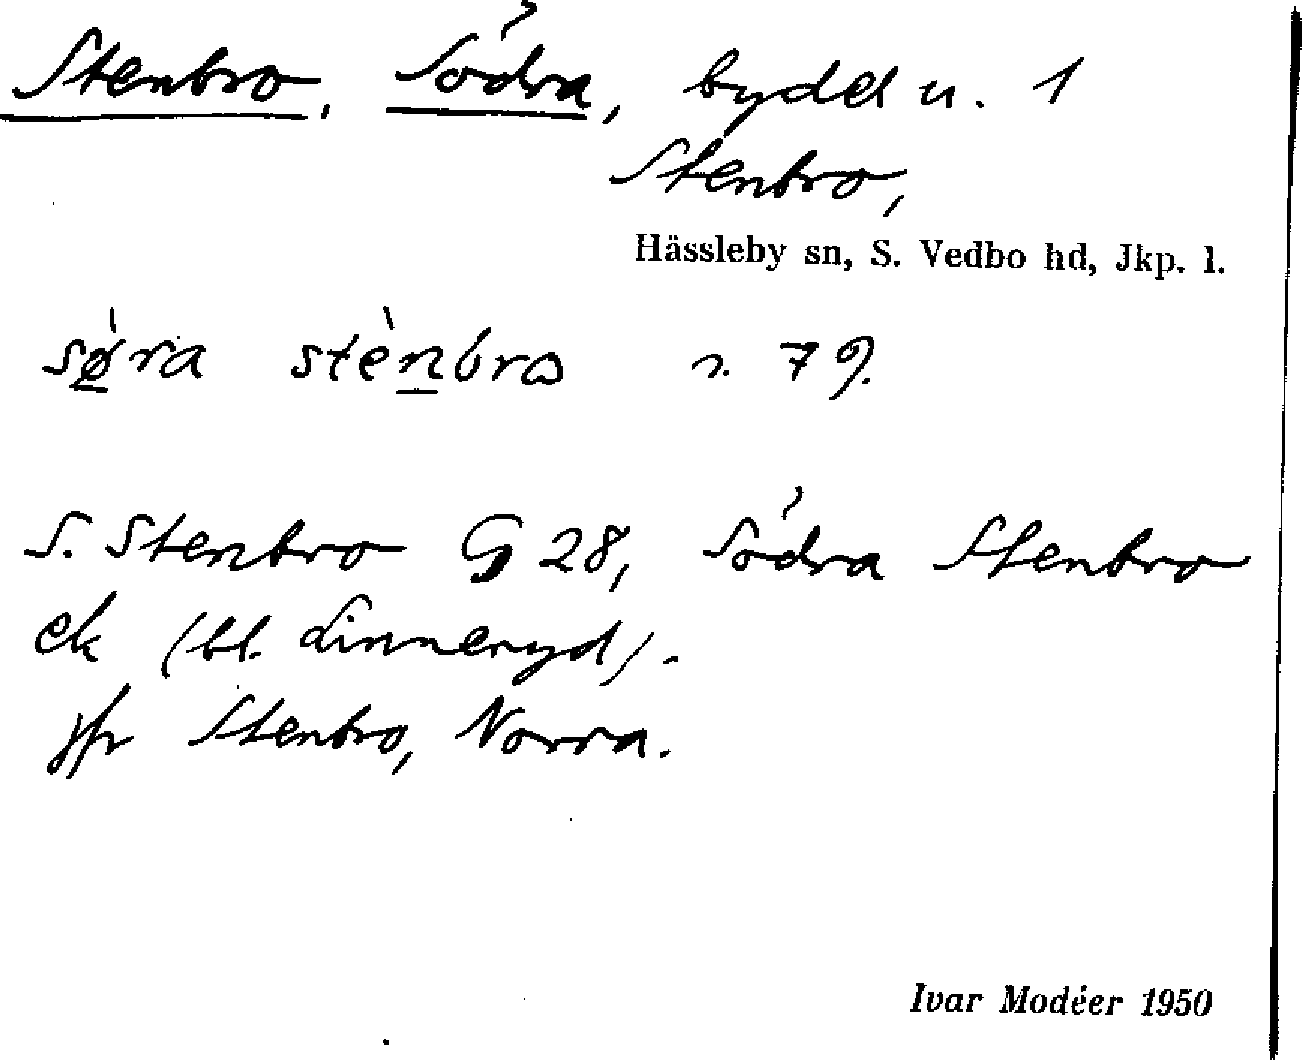 Stenbro, Södra, bydel u. 1
Stenbro,
Hässleby sn, S. Vedbo hd, Jkp. l.
sø̀ra stènbro n. 79.
S. Stenbro G 28, Södra Stenbro
ek (bl. Linneryd).
jfr Stenbro, Norra.
Ivar Modéer 1950